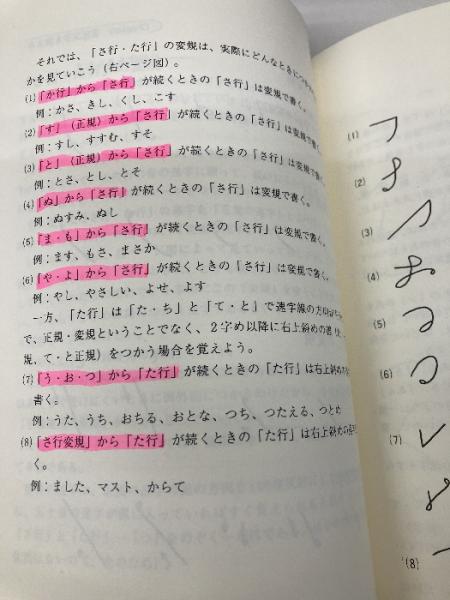 それでは、「さ行・た行」の変規は、実際にどんなときに
かを見ていこう（右ページ図）。
(1)「か行」から「さ行」が続くときの「さ行」は変規で書く。
例：かさ、きし、くし、こす
(2)「す」（正規）から「さ行」が続くときの「さ行」は変規で書く。
例：すし、すすむ、すそ
(3)「と」（正規）から「さ行」が続くときの「さ行」は変規で書く。
例：とさ、とし、とそ
(4)「ぬ」から「さ行」が続くときの「さ行」は変規で書く。
例：ぬすみ、ぬし
(5)「ま・も」から「さ行」が続くときの「さ行」は変規で書く。
例：ます、もさ、まさか
(6)「や・よ」から「さ行」が続くときの「さ行」は変規で書く。
例：やし、やさしい、よせ、よす
一方、「た行」は「た・ち」と「て・と」で逆字線の方
で、正規・変規ということでなく、２字め以降に右上斜めの
規、て・と正規）をつかう場合を覚えよう。
(7)「う・お・つ」から「た行」が続くときの「た行」は右上斜め
書く。
例：うた、うち、おちる、おとな、つち、つたえる、つとめ
(8)「さ行変規」から「た行」が続くときの「た行」は右上斜め
く。
例：ました、マスト、からて
(1)
(2)
(3)
(4)
(5)
(6)
(7)
(8)